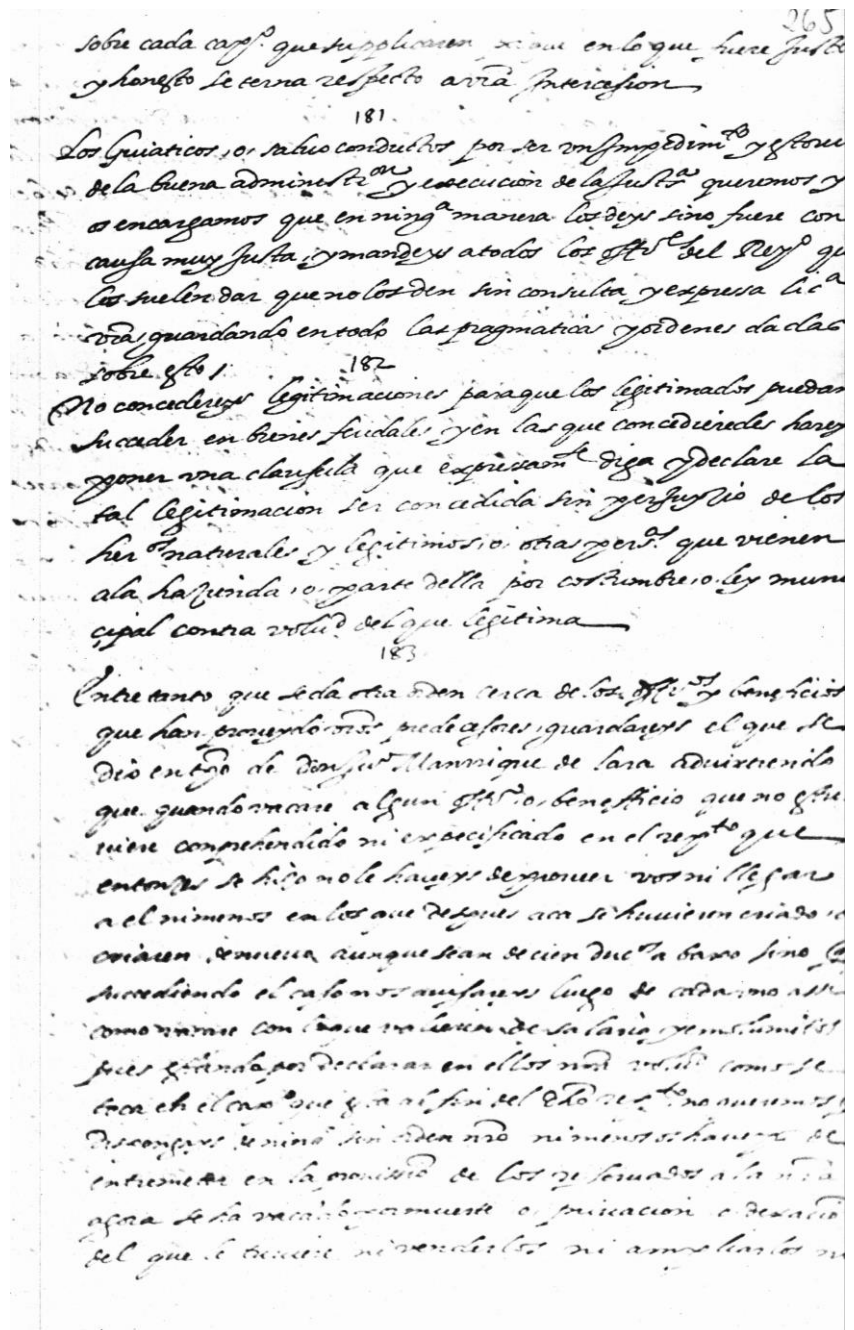 265
sobre cada capº. que supplicaren y que en lo que fuere Justo
y honesto se terna respecto a vrã Intercesion
181
Los Guiaticos, o, saluo conductos por ser vn Impedimto y estoru
de la buena administron y execucion de la Justa queremos y
os encargamos que en ninga manera los deys sino fuere con
causa muy Justa, y mandeys a todos los offes del Reyo qu
los suelen dar que no los den sin consulta y expressa lica
vrã, guardando en todo las pragmaticas y ordenes dadas
sobre esto /
182
No concedereys legitimaciones para que los legitimados puedan
succeder en bienes feudales y en las que concedieredes harey
poner vna clausula que expressamte diga y declare la
tal legitimacion ser concedida sin perjuyzio de los
heros naturales y legitimos, o, otras pers. que vienen
a la hazienda, o, parte della por costumbre, o, ley muni
cipal contra volud del que legitima
183
Entre tanto que se da otra orden cerca de los offios y beneficios
que han proueydo vros predecesores, guardareys el que se
dio en tpo de Don Juo Manrrique de Lara aduirtiendo
que quando vacare algun offo, o, benefficio que no estu
uiere comprehendido ni expecificado en el repto que
entonzes se hizo no le haueys de proueer vos ni llegar
a el ni menos en los que despues aca se huuieren criado, o
criaren de nueuo aunque sean de cien ducos a baxo sino
succediendo el caso nos auisareys luego de cada vno assi
como vacare con lo que valieren de salario y emolumtos
pues estando por declarar en ellos nrã volud como se
toca en el capo que esta al fin del dho repto no queremos
dispongays de ningo sin orden nrõ ni menos os haueys de
entremeter en la prouission de los reseruados a la nrã
agora se ha vacado por muerte o priuacion o dexacion
del que le tuuiere ni venderlos ni ampliarlos ni